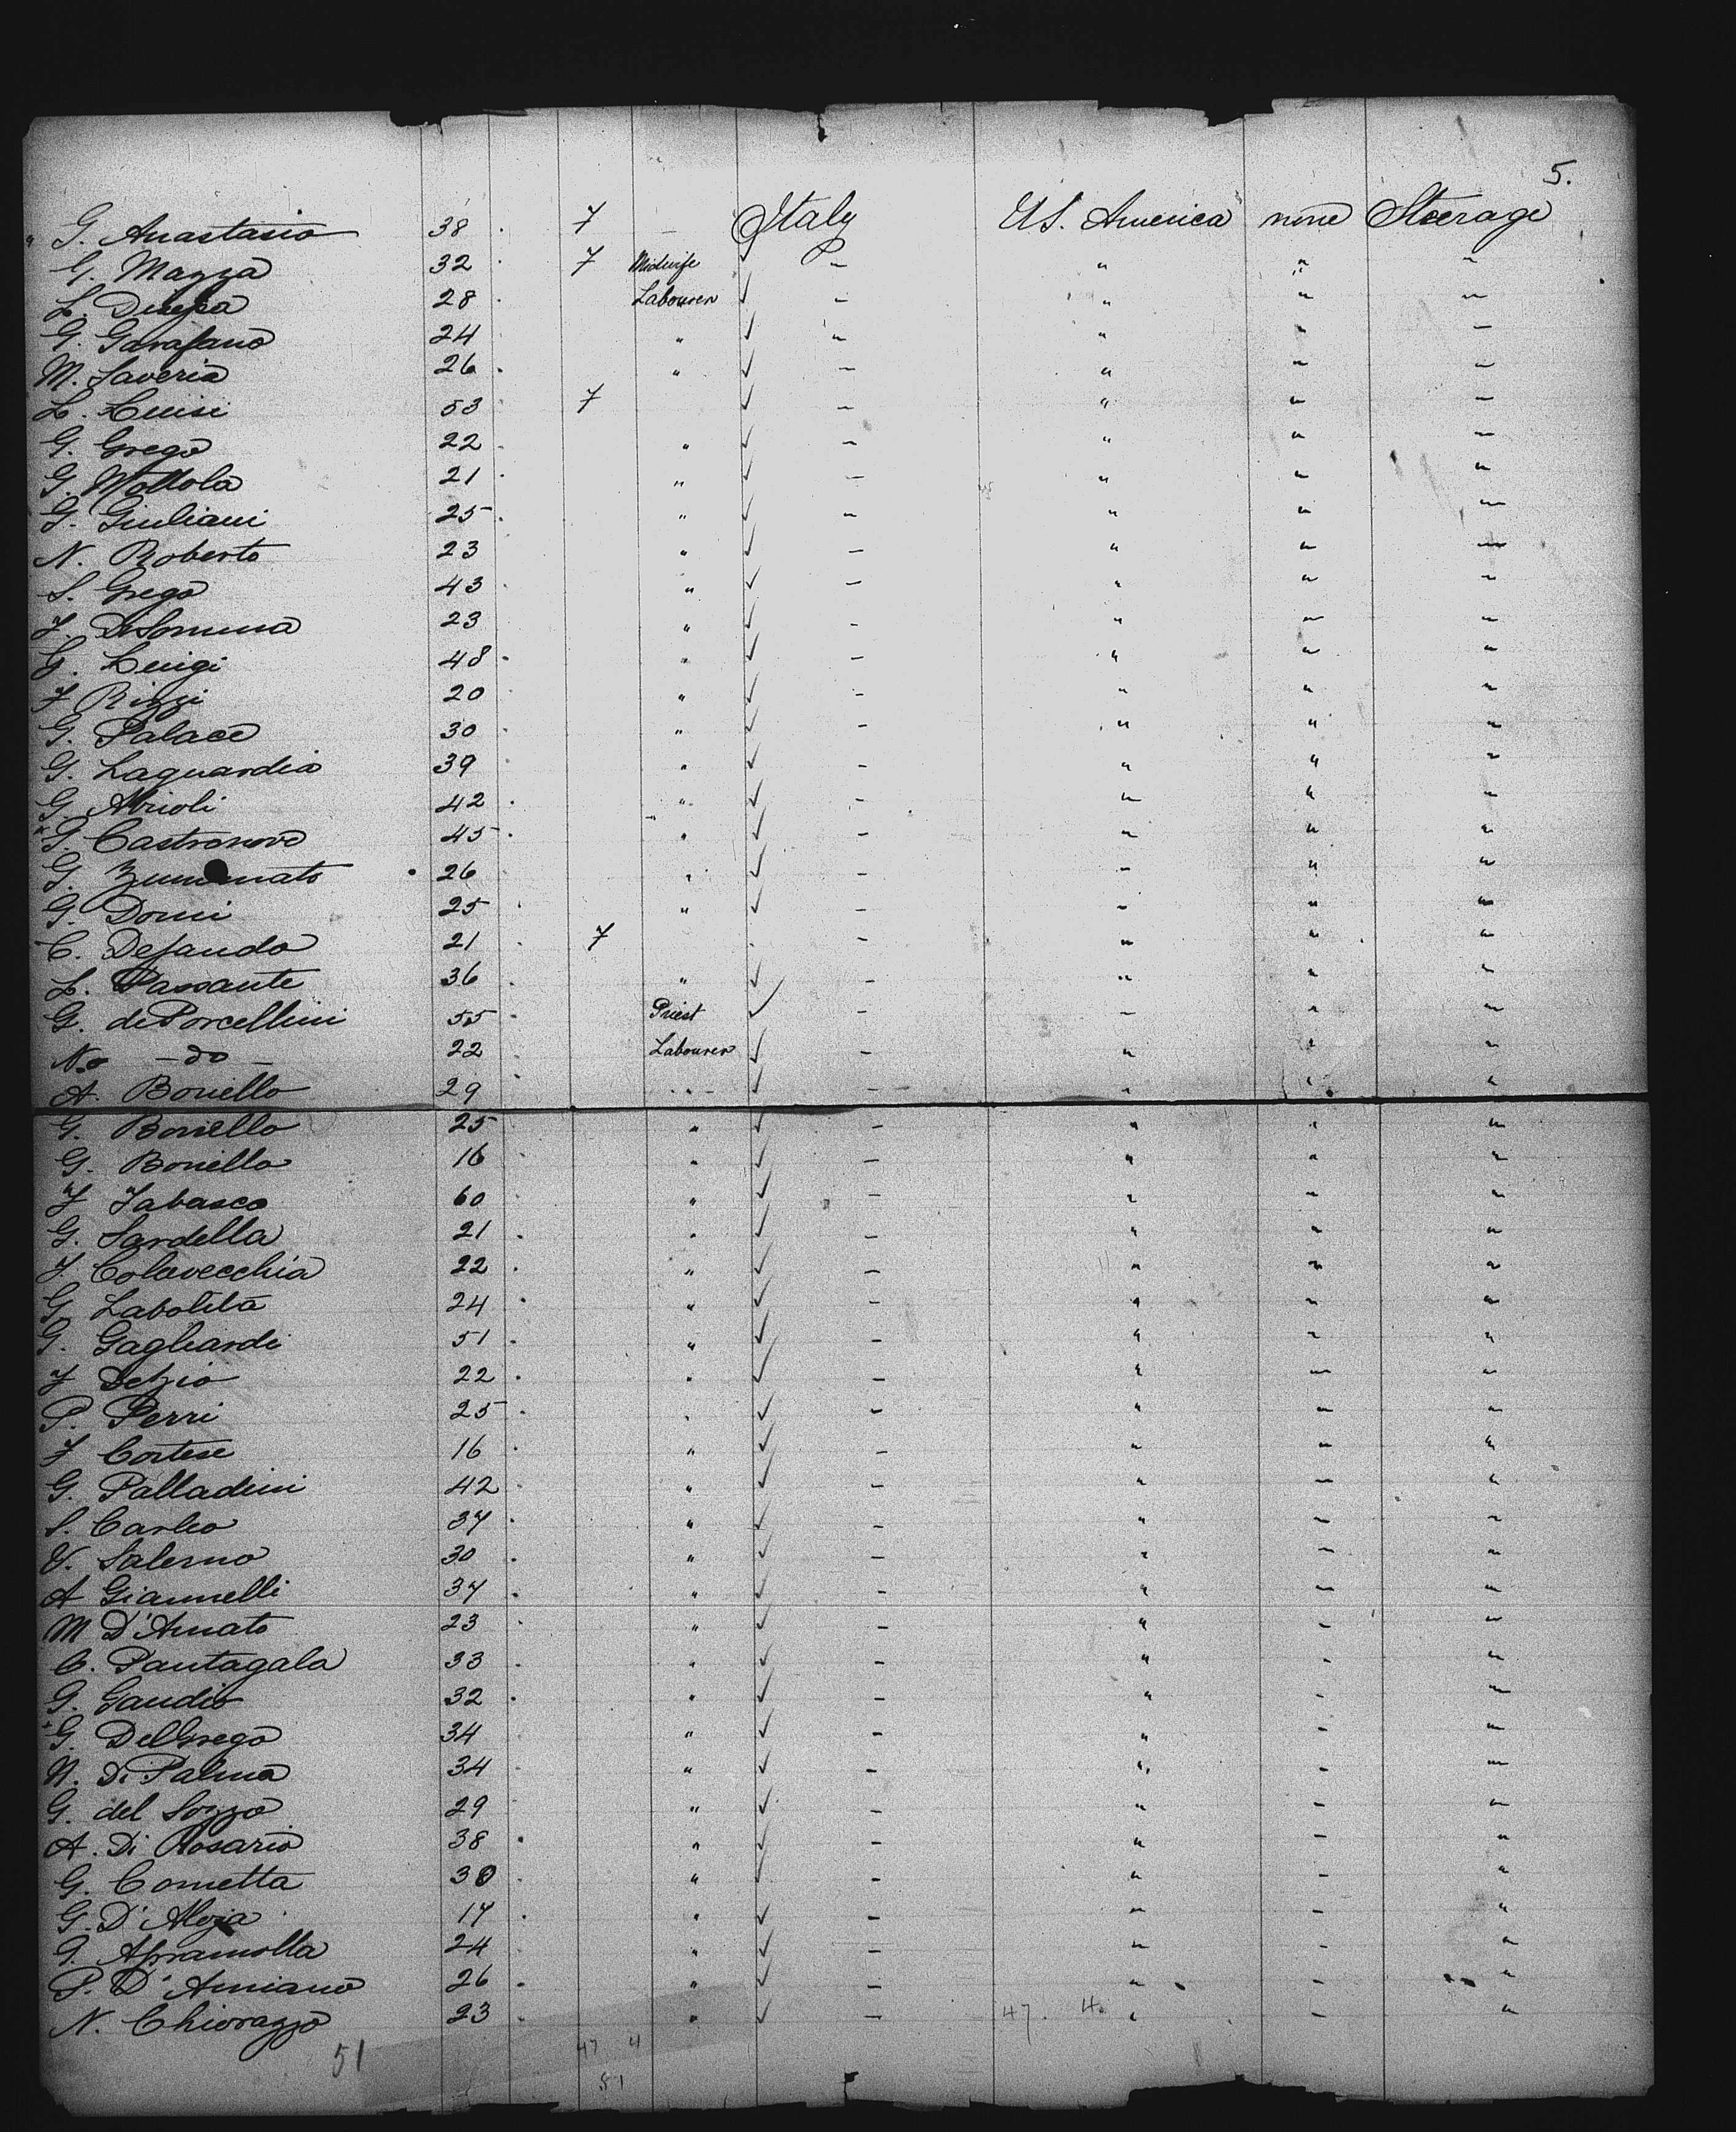 5.
G. Anastasio 38 . 7 Italy US. America none Steerage
G. Mazza 32 . 7 Midwife ✓ " " " "
L. 28 . Labourer ✓ " " " "
G. Garafano 24 " ✓ " " " "
M. Saveria 26 . " ✓ " " " "
L. Luisi 53 7 ✓ " " " "
G. Grego 22 . " ✓ " " " "
G. Mottola 21 . " ✓ " " " "
G. Giuliani 25 . " ✓ " " " "
N. Roberto 23 " ✓ " " " "
S. Grego 43 . " ✓ " " " "
F. DeSomma 23 " ✓ " " " "
G. Luigi 48 . " ✓ " " " "
F Rizzi 20 . " ✓ " " " "
G. Palace 30 . " ✓ " " " "
G. Laguardia 39 " ✓ " " " "
G. 42 . " ✓ " " " "
G. Castronovo 45 . " ✓ " " " "
G. Zummato 26 " ✓ " " " "
G. Domi 25 . " ✓ " " " "
C. Defando 21 . 7 " " " "
L. Passante 36 . " ✓ " " " "
G. de Porcellini 55 . Priest ✓ " " " "
N. - do - 22 . Labourer ✓ " " " "
A. Boniello 29 . " ✓ " " " "
G. Boniello 25 " ✓ " " " "
G. Boniello 16 . " ✓ " " " "
F Fabasco 60 . " ✓ " " " "
G. Sardella 21 . " ✓ " " " "
F. Colavecchia 22 . " ✓ " " " "
G. Labolita 24 . " ✓ " " " "
G. Gagliardi 51 . " ✓ " " " "
F Delzio 22 . " ✓ " " " "
P. Perri 25 . " ✓ " " " "
F Cortese 16 . " ✓ " " " "
G. Palladini 42 . " ✓ " " " "
S. Carleo 37 . " ✓ " " " "
V. Salerno 30 . " ✓ " " " "
A Giannelli 37 . " ✓ " " " "
M D'Amato 23 . " ✓ " " " "
C. Pantagala 33 . " ✓ " " " "
G. Gaudio 32 . " ✓ " " " "
G. DelGrego 34 " ✓ " " " "
N. Di Palma 34 . " ✓ " " " "
G. del Sozzo 29 . " ✓ " " " "
A. Di Rosario 38 . " ✓ " " " "
G. Cometta 30 . " ✓ " " " "
G. D'Aloja 17 . " ✓ " " " "
G. Apramolla 24 . " ✓ " " " "
P. D'Amiano 26 . " ✓ " " " "
N. Chiorazzo 23 . " ✓ " " " "
47. 4.
51 47 4
51